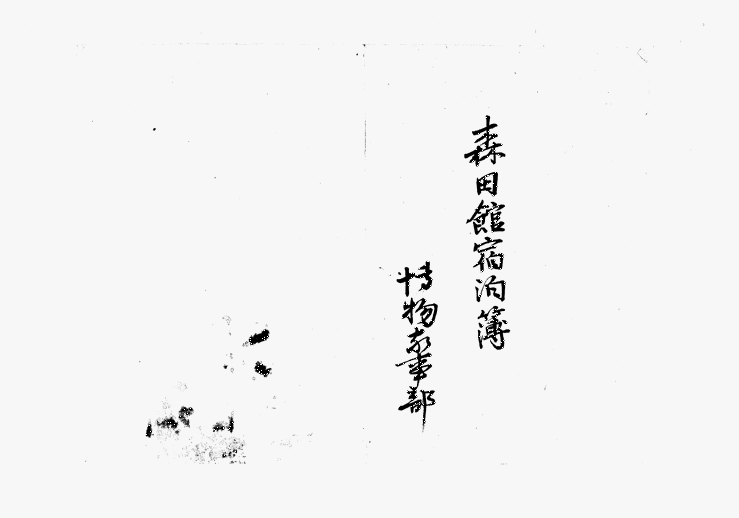 森田館宿泊簿
博物家事部